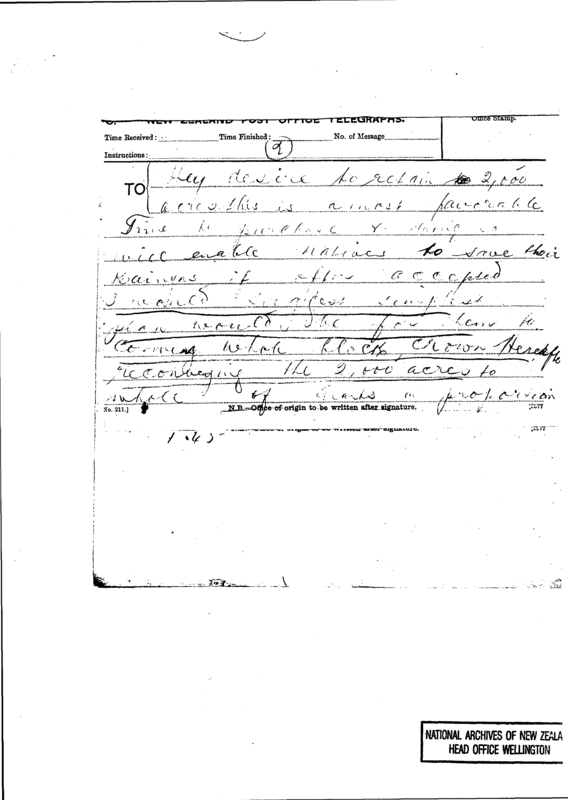 NEW ZEALAND POST OFFICE TELEGRAPHS.
Office Stamp.
Time Received:
Time Finished:
No. of Message
2
Instructions:
TO
they desire to retain 2,000
acres this is a most favorable
Time to purchase & doing so
will enable natives to save their
if offer accepted
I would suggest simplest
plan would be for them to
Convey whole block Crown Hereafter
reconveying the 2,000 acres to
whole of in proportion
No. 211.]
N.B.—Office of origin to be written after signature.
1.45